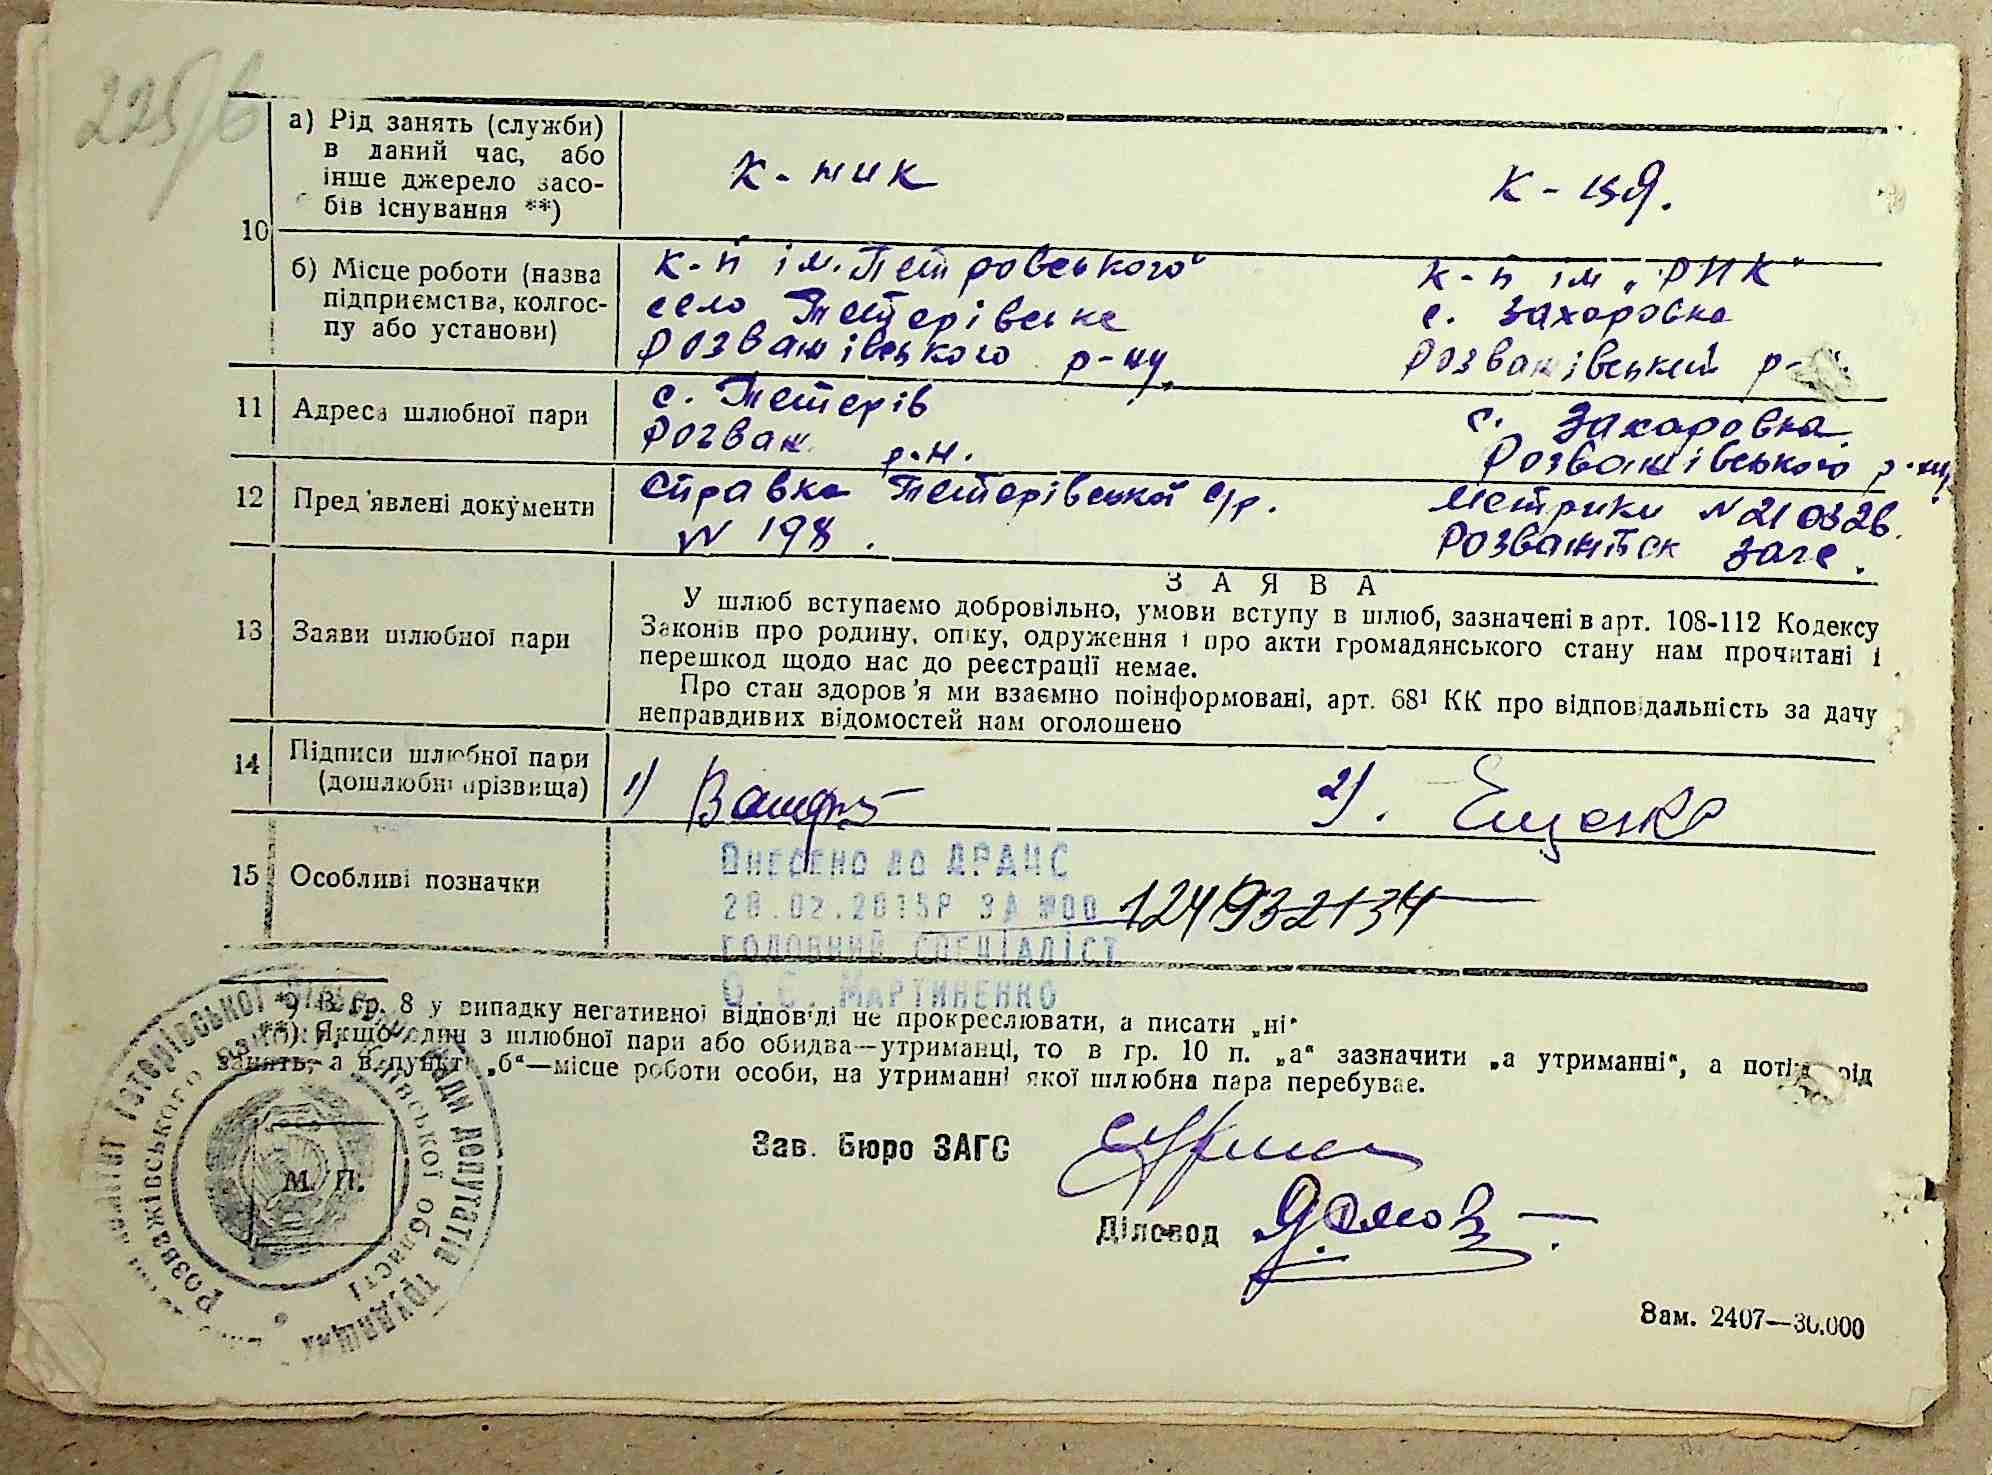 225/6
а) Рід занять (служби)
в даний час, або
інше джерело засо-
бів існування **)
к-ник
к-ця.
10
б) Місце роботи (назва
підприємства, колгос-
пу або установи)
к-п ім. Петровського"
село Тетерівське
Розважівського р-ну
к-п ім „РИК"
с. Захаровка
Розважівський р-
11
Адреса шлюбної пари
с. Тетерів
Розваж. р.н.
с. Захаровка.
Розважівського р-ну
12
Пред'явлені документи
Справка Тетерівської с/р.
N 198.
Метрики N 210326.
Розважівск загс.
13
Заяви шлюбної пари
ЗАЯВА
У шлюб вступаємо добровільно, умови вступу в шлюб, зазначені в арт. 108-112 Кодексу
Законів про родину, опіку, одруження і про акти громадянського стану нам прочитані і
перешкод щодо нас до реєстрації немає.
Про стан здоров'я ми взаємно поінформовані, арт. 68¹ КК про відповідальність за дачу
неправдивих відомостей нам оголошено
14
Підписи шлюбної пари
(дошлюбні прізвища)
1)
2). Єщенко
15
Особливі позначки
Внесено до ДРАЦС
28.02.2015р за №00 124932134
головний спеціаліст
О.С. Мартиненко
*) В гр. 8 у випадку негативної відповіді не прокреслювати, а писати „ні"
**) Якщо один з шлюбної пари або обидва—утриманці, то в гр. 10 п. „а" зазначити „а утриманні", а потім рід
занять, а в пункті „б"—місце роботи особи, на утриманні якої шлюбна пара перебуває.
Тетерівської сільської Ради депутатів трудящих
Розважівського району Київської області
М. П.
Зав. Бюро ЗАГС
Діловод
Зам. 2407—30.000